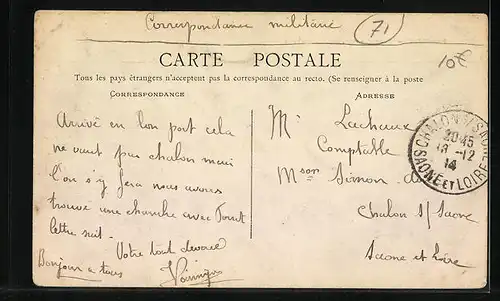 Correspondance militaire
71
CARTE POSTALE
Tous les pays étrangers n'acceptent pas la correspondance au recto. (Se renseigner à la poste
CORRESPONDANCE
ADRESSE
Arrivé en bon port cela
ne vaut pas chalon mais
l'on s'y fera nous avons
trouvé une chambre avec
lettre suit.
Votre tout dévoué
Bonjour a tous
Mr Lachaux
Comptable
Mson Simon
Chalon s/ Saone
Saone et Loire
CHALON S/SAONE
20 45
18 -12
14
SAONE ET LOIRE